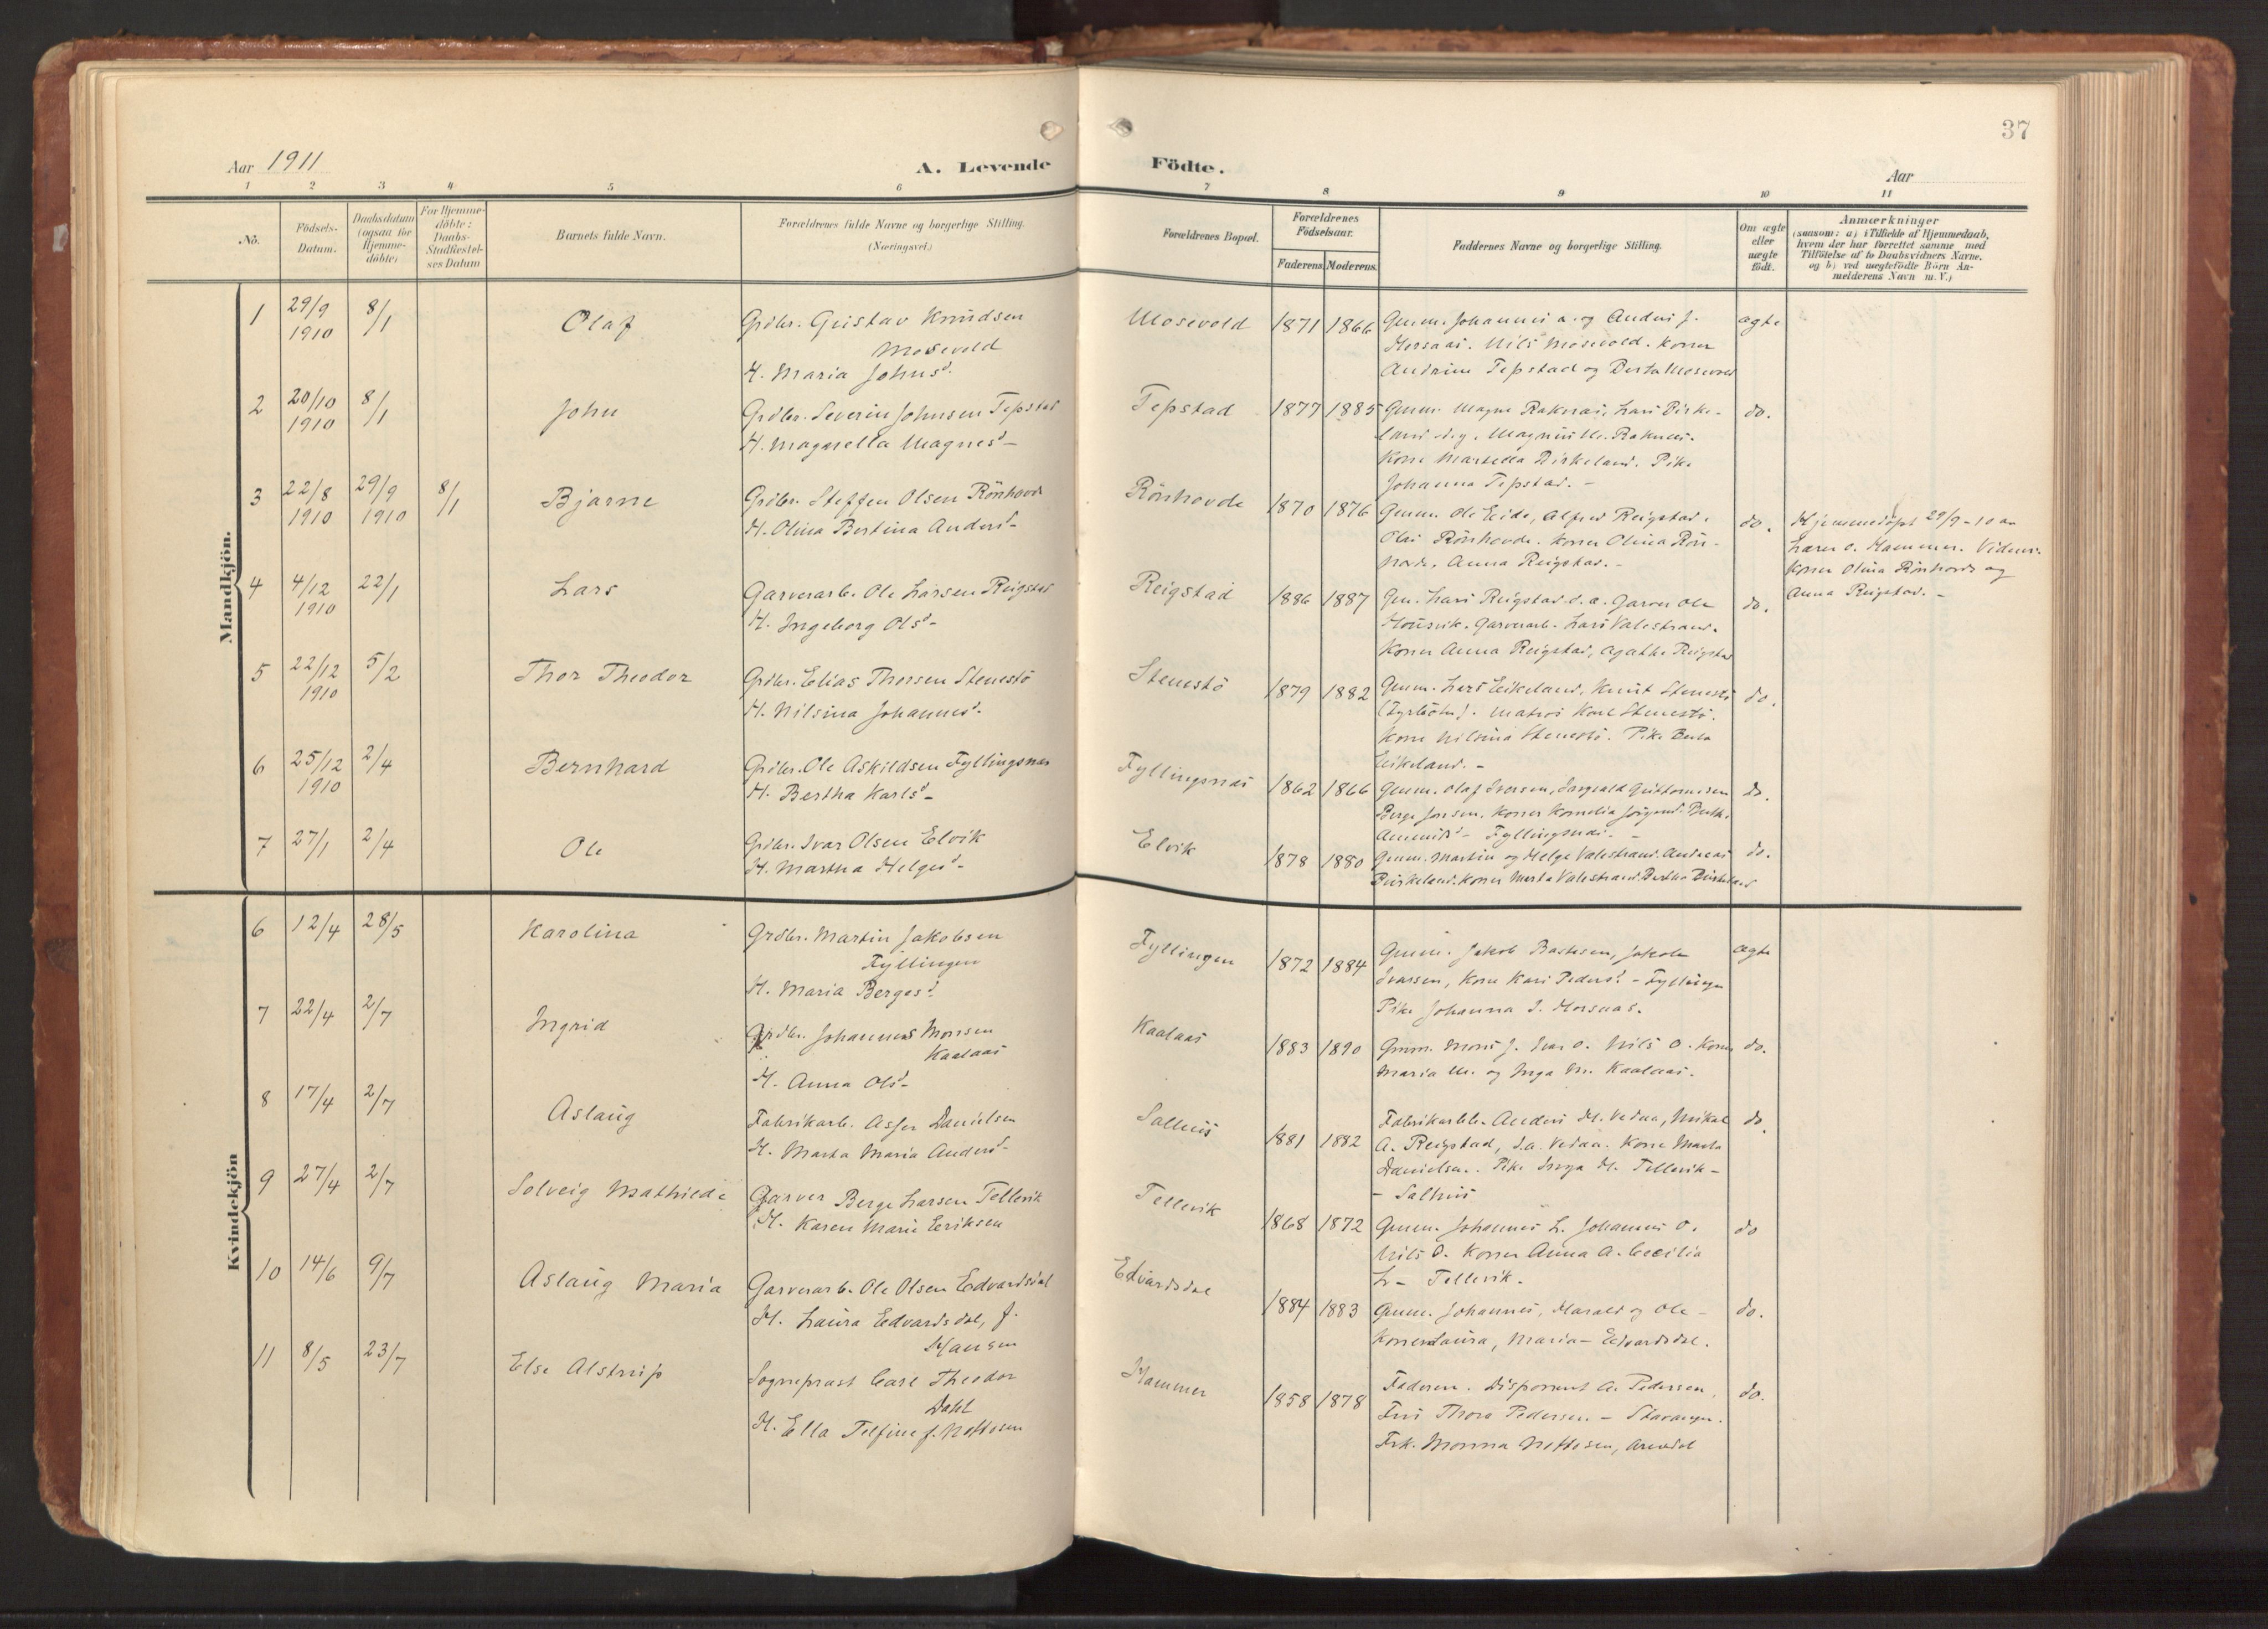 37
Aar 1911
A. Levende
Födte.
Aar
1 2 3 4 5 6 7 8 9 10 11
No.
Födsels-
Datum.
Daabsdatum
(ogsaa for
Hjemme-
döbte)
For Hjemme-
döbte:
Daabs-
Stadfæstel-
ses Datum
Barnets fulde Navn.
Forældrenes fulde Navne og borgerlige Stilling.
(Næringsvei.)
Forældrenes Bopæl.
Forældrenes
Födselsaar.
Faderens. Moderens.
Faddernes Navne og borgerlige Stilling.
Om ægte
eller
uægte
födt.
Anmærkninger
(saasom: a) i Tilfælde af Hjemmedaab,
hvem der har forrettet samme med
Tilföielse af to Daabsvidners Navne.
og b) ved uægtefödte Börn An-
melderens Navn m. V.)
Mandkjön.
1 29/9 1910 8/1 Olaf
Grdbr. Gustav Knudsen
Mosevold
H. Maria Johnsd.
Mosevold 1871 1866
Gmm. Johannes a. og Anders J.
Horsaas. Nils Mosevold. Koner
Andrine Tepstad og Berta Mosevold
ægte
2 20/10 1910 8/1 John
Grdbr. Severin Johnsen Tepstad
H. Magnella Magnesd-
Tepstad 1877 1885
Gmm. Magne Raknes, Lars Birke-
land d.y. Magnus M. Raknes.
Kone Martella Birkeland. Pike
Johanna Tepstad. -
do.
3 22/8 1910 29/9 1910 8/1 Bjarne
Grdbr. Steffen Olsen Rönhovde
H. Olina Bertina Andersd-
Rönhovde 1870 1876
Gmm. Ole Eide, Alfred Reigstad.
Olai Rönhovde. Koner Olina Rön-
hovde, Anna Reigstad. -
do.
Hjemmedöpt 29/9-10 av
Lærer O. Hammer. Vidner:
Koner Olina Rönhovde og
Anna Reigstad. -
4 4/12 1910 22/1 Lars
Garverarb. Ole Larsen Reigstad
H. Ingeborg Olsd-
Reigstad 1886 1887
Gm. Lars Reigstad d.a. Garver Ole
Housvik. Garverarb. Lars Valestrand.
Koner Anna Reigstad, Agathe Reigstad
do.
5 22/12 1910 5/2 Thor Theodor
Grdbr. Elias Thorsen Stenestö
H. Nilsina Johannesd-
Stenestö 1879 1882
Gmm. Lars Eikeland, Knut Stenestö
(Fyrböter). Matros Karl Stenestö.
Kone Nilsina Stenestö. Pike Berta
Eikeland. -
do.
6 25/12 1910 2/4 Bernhard
Grdbr. Ole Askildsen Fyllingsnæs
H. Bertha Karlsd-
Fyllingsnæs 1862 1866
Gmm. Olaf Iversen, Ingvald Guttormsen
Berge Jonsen. Koner Kornelia
Fyllingsnæs. -
do.
7 27/1 2/4 Ole
Grdbr. Ivar Olsen Elvik
H. Martha Helgesd-
Elvik 1878 1880
Gmm. Martin og Helge Valestrand. Andreas
Birkeland. Koner Marta Valestrand Bertha Birkeland
do.
Kvindekjön
6 12/4 28/5 Karolina
Grdbr. Martin Jakobsen
Fyllingen
H. Maria Bergesd.
Fyllingen 1872 1884
Gmm. Jakob Bastesen, Jakob
Ivarsen, Kone Kari Pedersd. - Fyllingen
Pike Johanna I. Horsaas.
ægte
7 22/4 2/7 Ingrid
Grdbr. Johannes Monsen
Kaalaas
H. Anna Olsd-
Kaalaas 1883 1890
Gmm. Mons J. Ivar O. Nils O. Koner
Maria M. og Inga M. Kaalaas.
do.
8 17/4 2/7 Aslaug
Fabrikarb. Asser Danielsen
H. Marta Maria Andersd-
Salhus 1881 1882
Fabrikarbb. Anders H. Vedaa, Mikal
A. Reigstad, I.a. Vedaa. Kone Marta
Danielsen. Pike Inga H. Tellevik-
- Salhus
do.
9 27/4 2/7 Solveig Mathilde
Garver Berge Larsen Tellevik
H. Karen Marie Eriksen
Tellevik 1868 1872
Gmm. Johannes L. Johannes O.
Nils O. Koner Anna A. Cecilia
L- Tellevik.
do
10 14/6 9/7 Aslaug Maria
Garverarb. Ole Olsen Edvardsdal
H. Laura Edvardsdal, f.
Hansen
Edvardsdal 1884 1883
Gmm. Johannes, Harald og Ole -
Koner Laura, Maria - Edvardsdal.
do.
11 8/5 23/7 Else Alstrup
Sogneprest Carl Theodor
Dahl
H. Ella Telfine f. Nottosen
Hammer 1858 1878
Faderen. Disponent A. Pedersen,
Fru Thora Pedersen - Stavanger.
Frk. Monna Nottosen, Arendal
do.